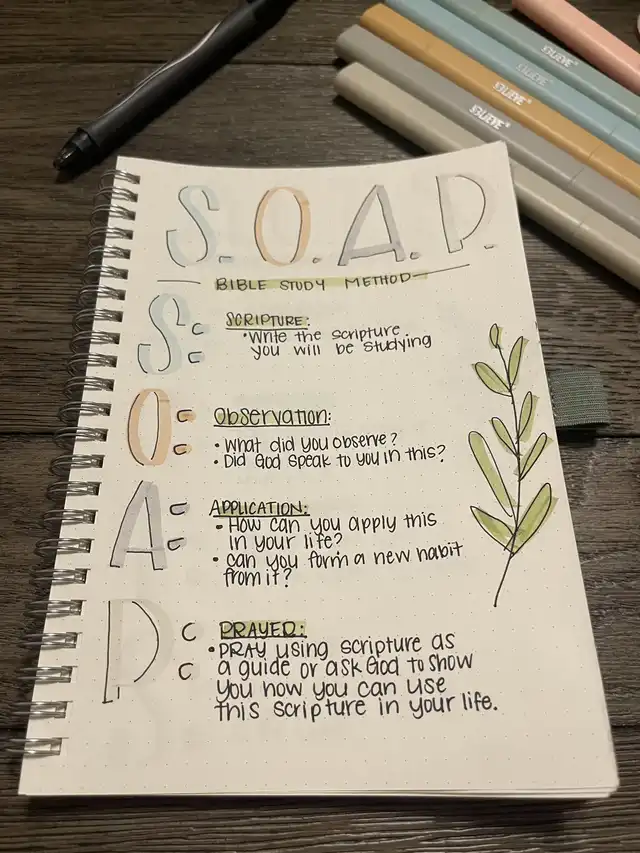 S. O. A. P.
BIBLE STUDY METHOD
S:
SCRIPTURE:
• Write the scripture
you will be studying
O:
Observation:
• What did you observe?
• Did God speak to you in this?
A:
APPLICATION:
• How can you apply this
in your life?
• can you form a new habit
from it?
P:
PRAYER:
• PRAY using scripture as
a guide or ask God to show
you how you can use
this scripture in your life.